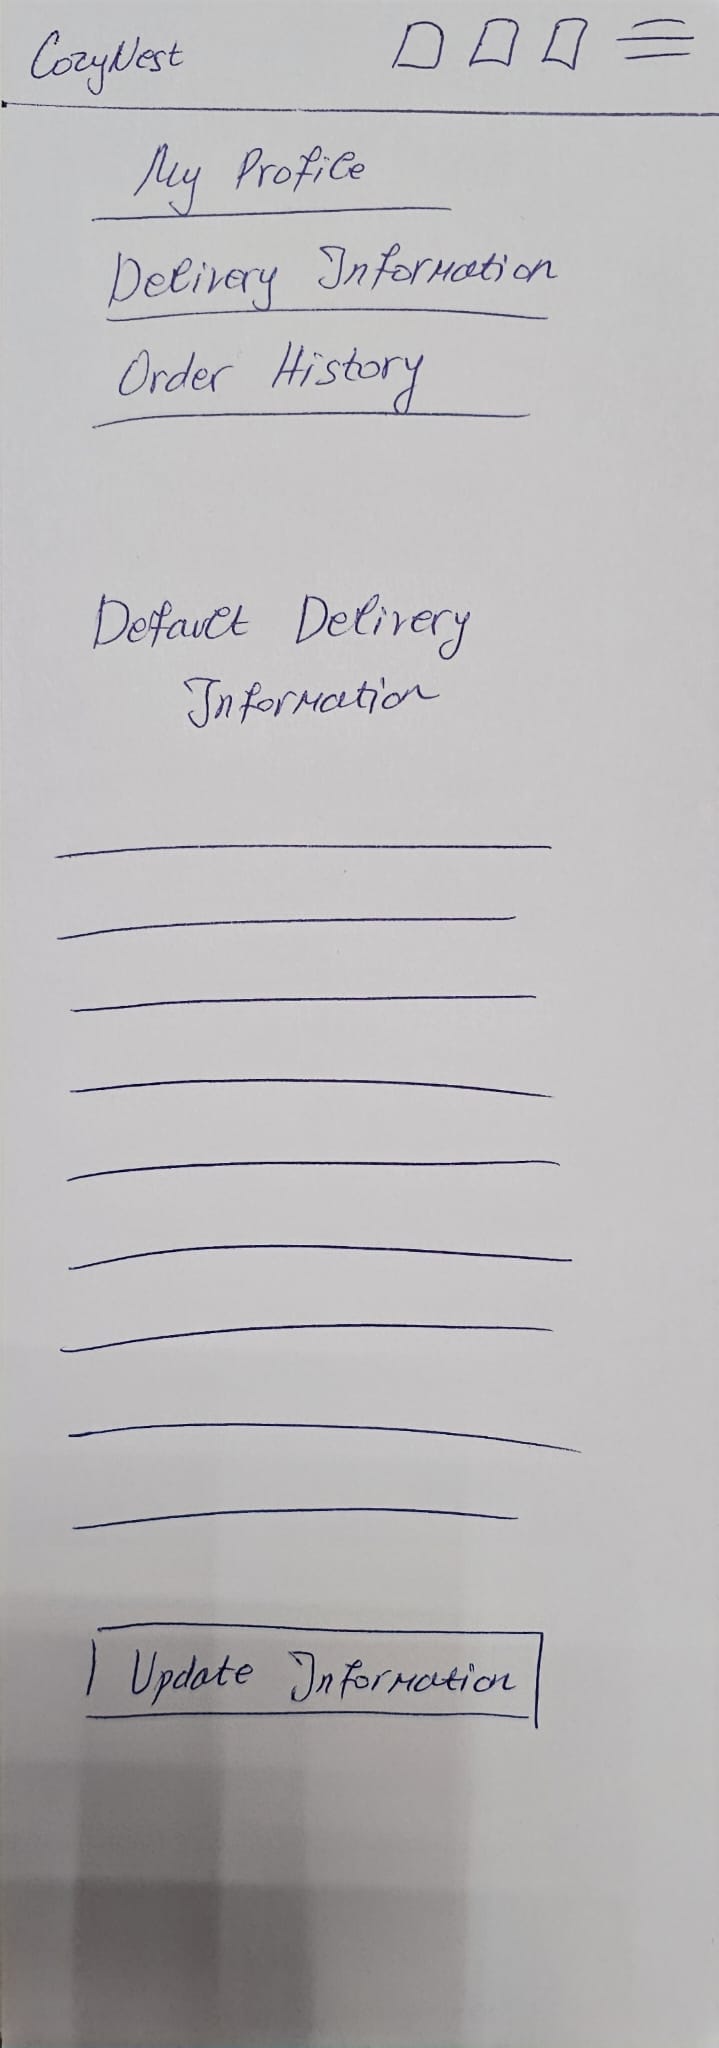 CozyNest
My Profile
Delivery Information
Order History
Default Delivery
Information
Update Information